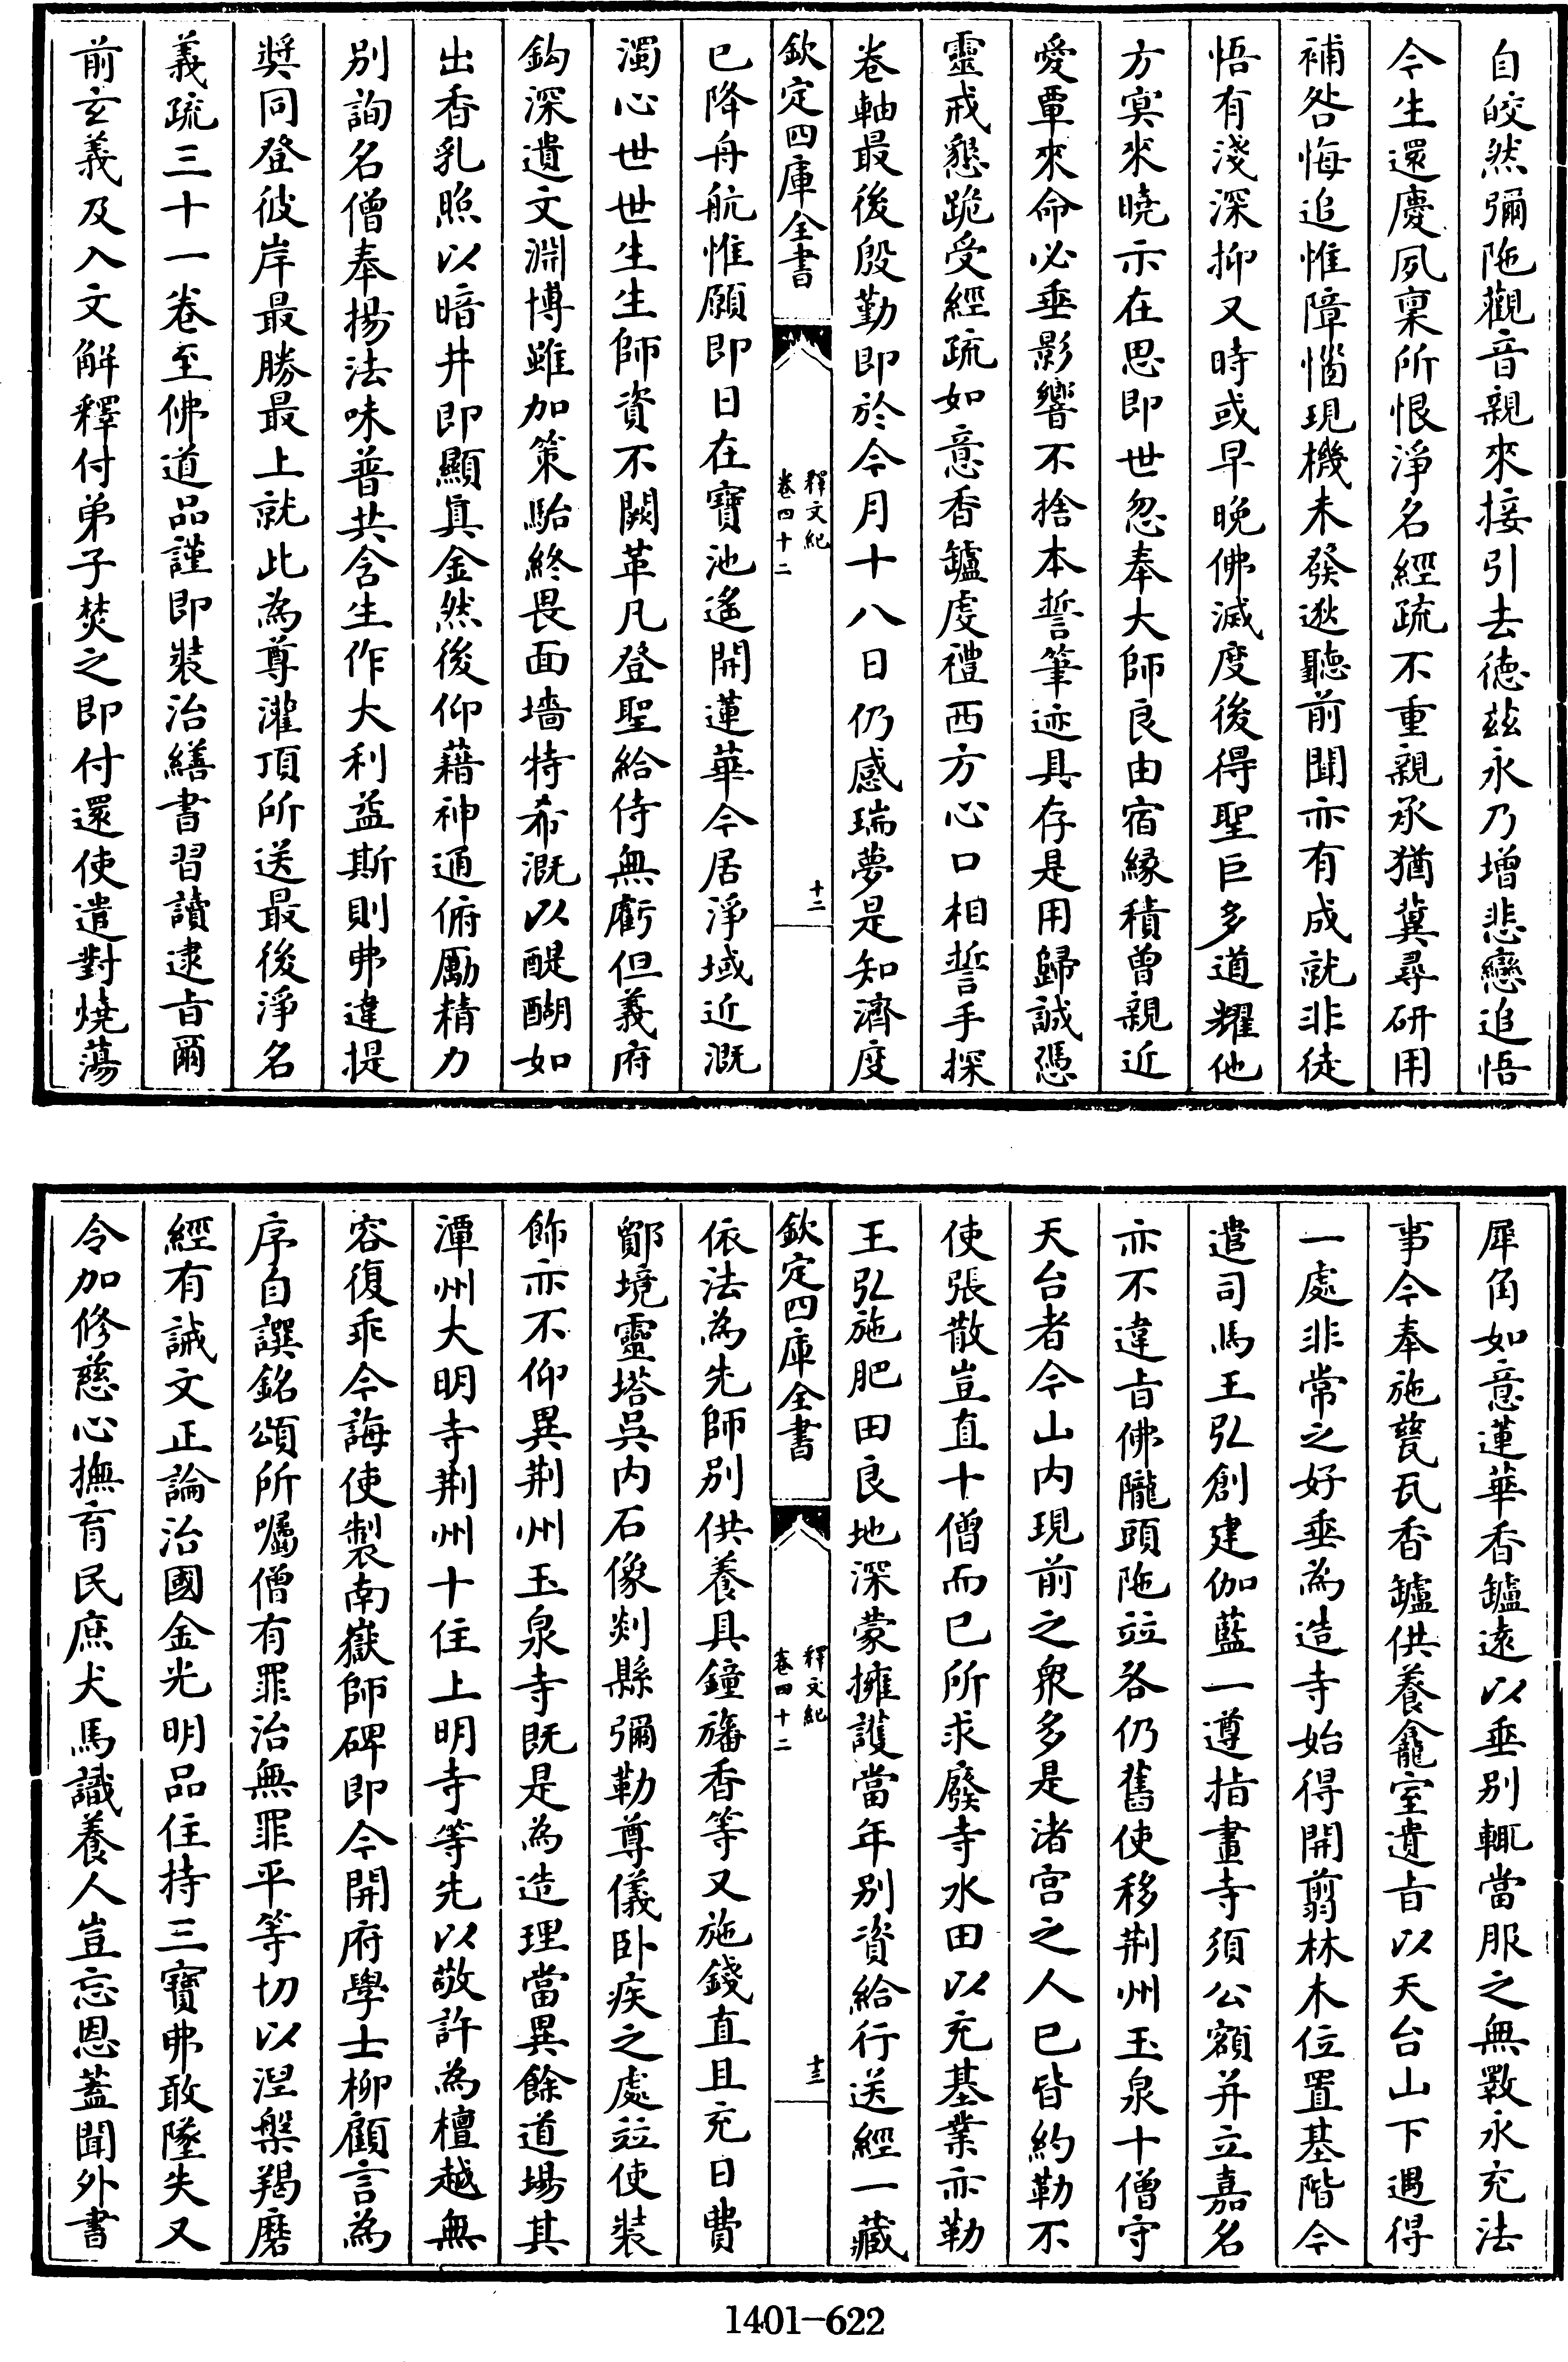 自皎然彌陁觀音親來接引去徳兹永乃增悲戀追悟
今生還慶夙稟所恨淨名經疏不重親承猶冀尋研用
補咎悔追惟障惱現機未發逖聽前聞亦有成就非徒
悟有淺深抑又時或早晚佛滅度後得聖巨多道耀他
方寞來曉示在思即世忽奉大師良由宿緣積曾親近
愛覃來命必垂影響不捨本誓筆迹具存是用歸誠憑
靈戒懇跪受經疏如意香鑪虔禮西方心口相誓手探
卷軸最後殷勤即於今月十八日仍感瑞夢是知濟度
欽定四庫全書
釋文紀
卷四十二
十二
已降舟航惟願即日在寶池遙開蓮華今居淨域近溉
濁心世世生生師資不闕革凡登聖給侍無虧但義府
鈎深遺文淵博雖加策駘終畏面墻特希溉以醍醐如
出香乳照以暗井即顯真金然後仰藉神通俯勵精力
別詢名僧奉揚法味普共含生作大利益斯則弗違提
奬同登彼岸最勝最上就此為尊灌頂所送最後淨名
義疏三十一卷至佛道品謹即裝治繕書習讀逮㫖爾
前玄義及入文解釋付弟子焚之即付還使遣對燒蕩
犀角如意蓮華香鑪遠以垂別輒當服之無斁永充法
事今奉施甆瓦香鑪供養龕室遺㫖以天台山下遇得
一處非常之好垂為造寺始得開剪林木位置基階今
遣司馬王弘創建伽藍一遵指畫寺須公額并立嘉名
亦不違㫖佛隴頭陁竝各仍舊使移荆州玉泉十僧守
天台者今山内現前之衆多是渚宮之人已皆約勒不
使張散豈直十僧而已所求廢寺水田以充基業亦勒
王弘施肥田良地深蒙擁護當年別資給行送經一藏
欽定四庫全書
釋文紀
卷四十二
十三
依法為先師別供養具鐘旛香等又施錢直且充日費
鄮境靈塔吳内石像剡縣彌勒尊儀卧疾之處竝使裝
飾亦不仰異荆州玉泉寺既是為造理當異餘道場其
潭州大明寺荆州十住上明寺等先以敬許為檀越無
容復乖今誨使製南嶽師碑即令開府學士柳顧言為
序自譔銘頌所囑僧有罪治無罪平等切以涅槃羯磨
經有誡文正論治國金光明品住持三寶弗敢墜失又
令加修慈心撫育民庶犬馬識養人豈忘恩蓋聞外書
1401-622